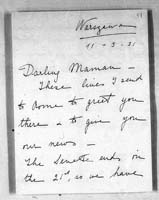 Warszawa
11-3-31
Darling Maman -
These lines I send
to Rome to greet you
there & to give you
our news -
The Senate ends on
the 21st so we have